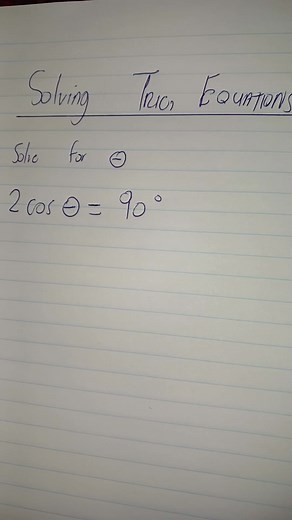 Solving Trig. EQUATIONS
Solve for θ
2 cos θ = 90°